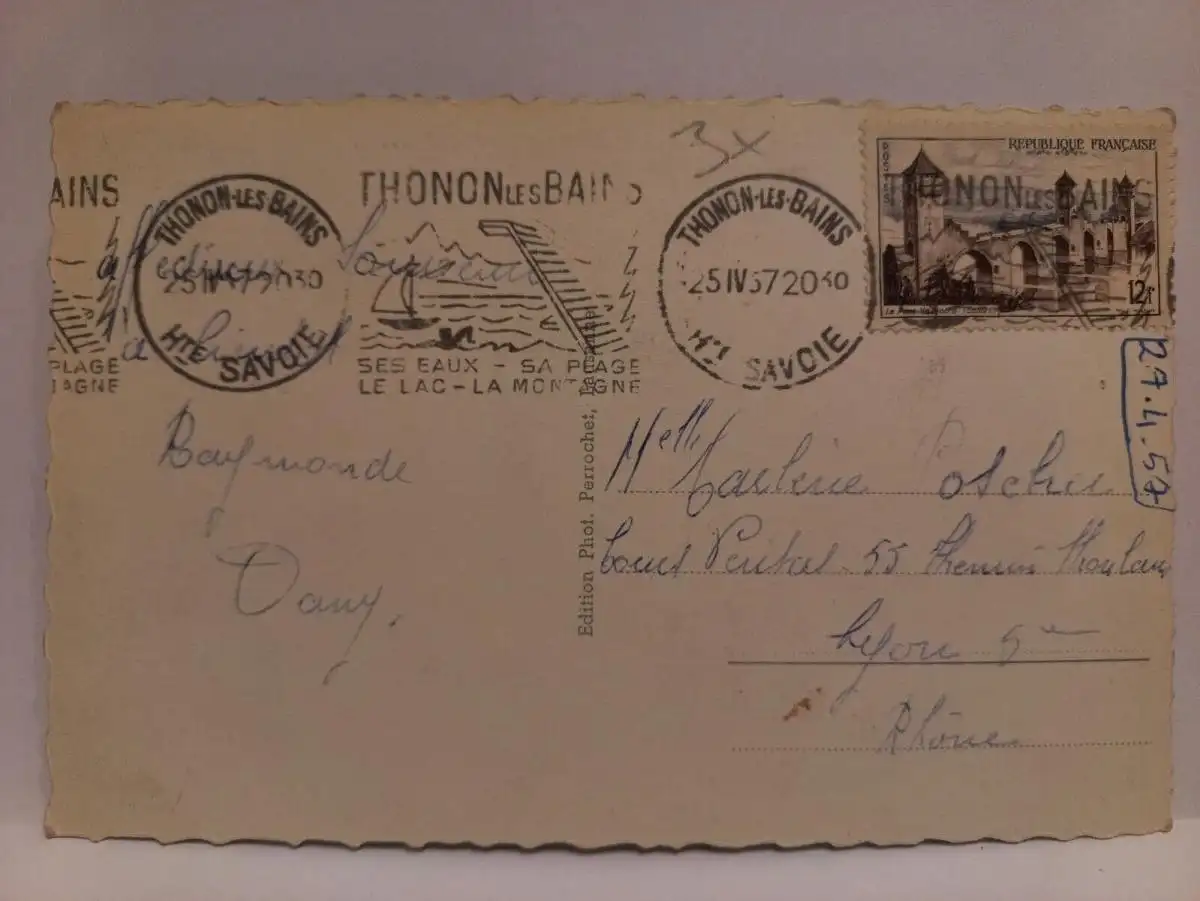 3x
AINS
THONON-LES-BAINS
25 IV 57 20 30
HTE SAVOIE
THONON LES BAINS
THONON-LES-BAINS
25 IV 57 20 30
HTE SAVOIE
POSTES
REPUBLIQUE FRANÇAISE
THONON LES BAINS
12F
PLAGE
TAGNE
SES EAUX - SA PLAGE
LE LAC - LA MONTAGNE
Affectueux
à bientôt
Raymonde
Dany.
Edition Phot. Perrochet, Lausanne
27.4.57
Melle Marlène
55 Chemin
Lyon 5me
Rhône